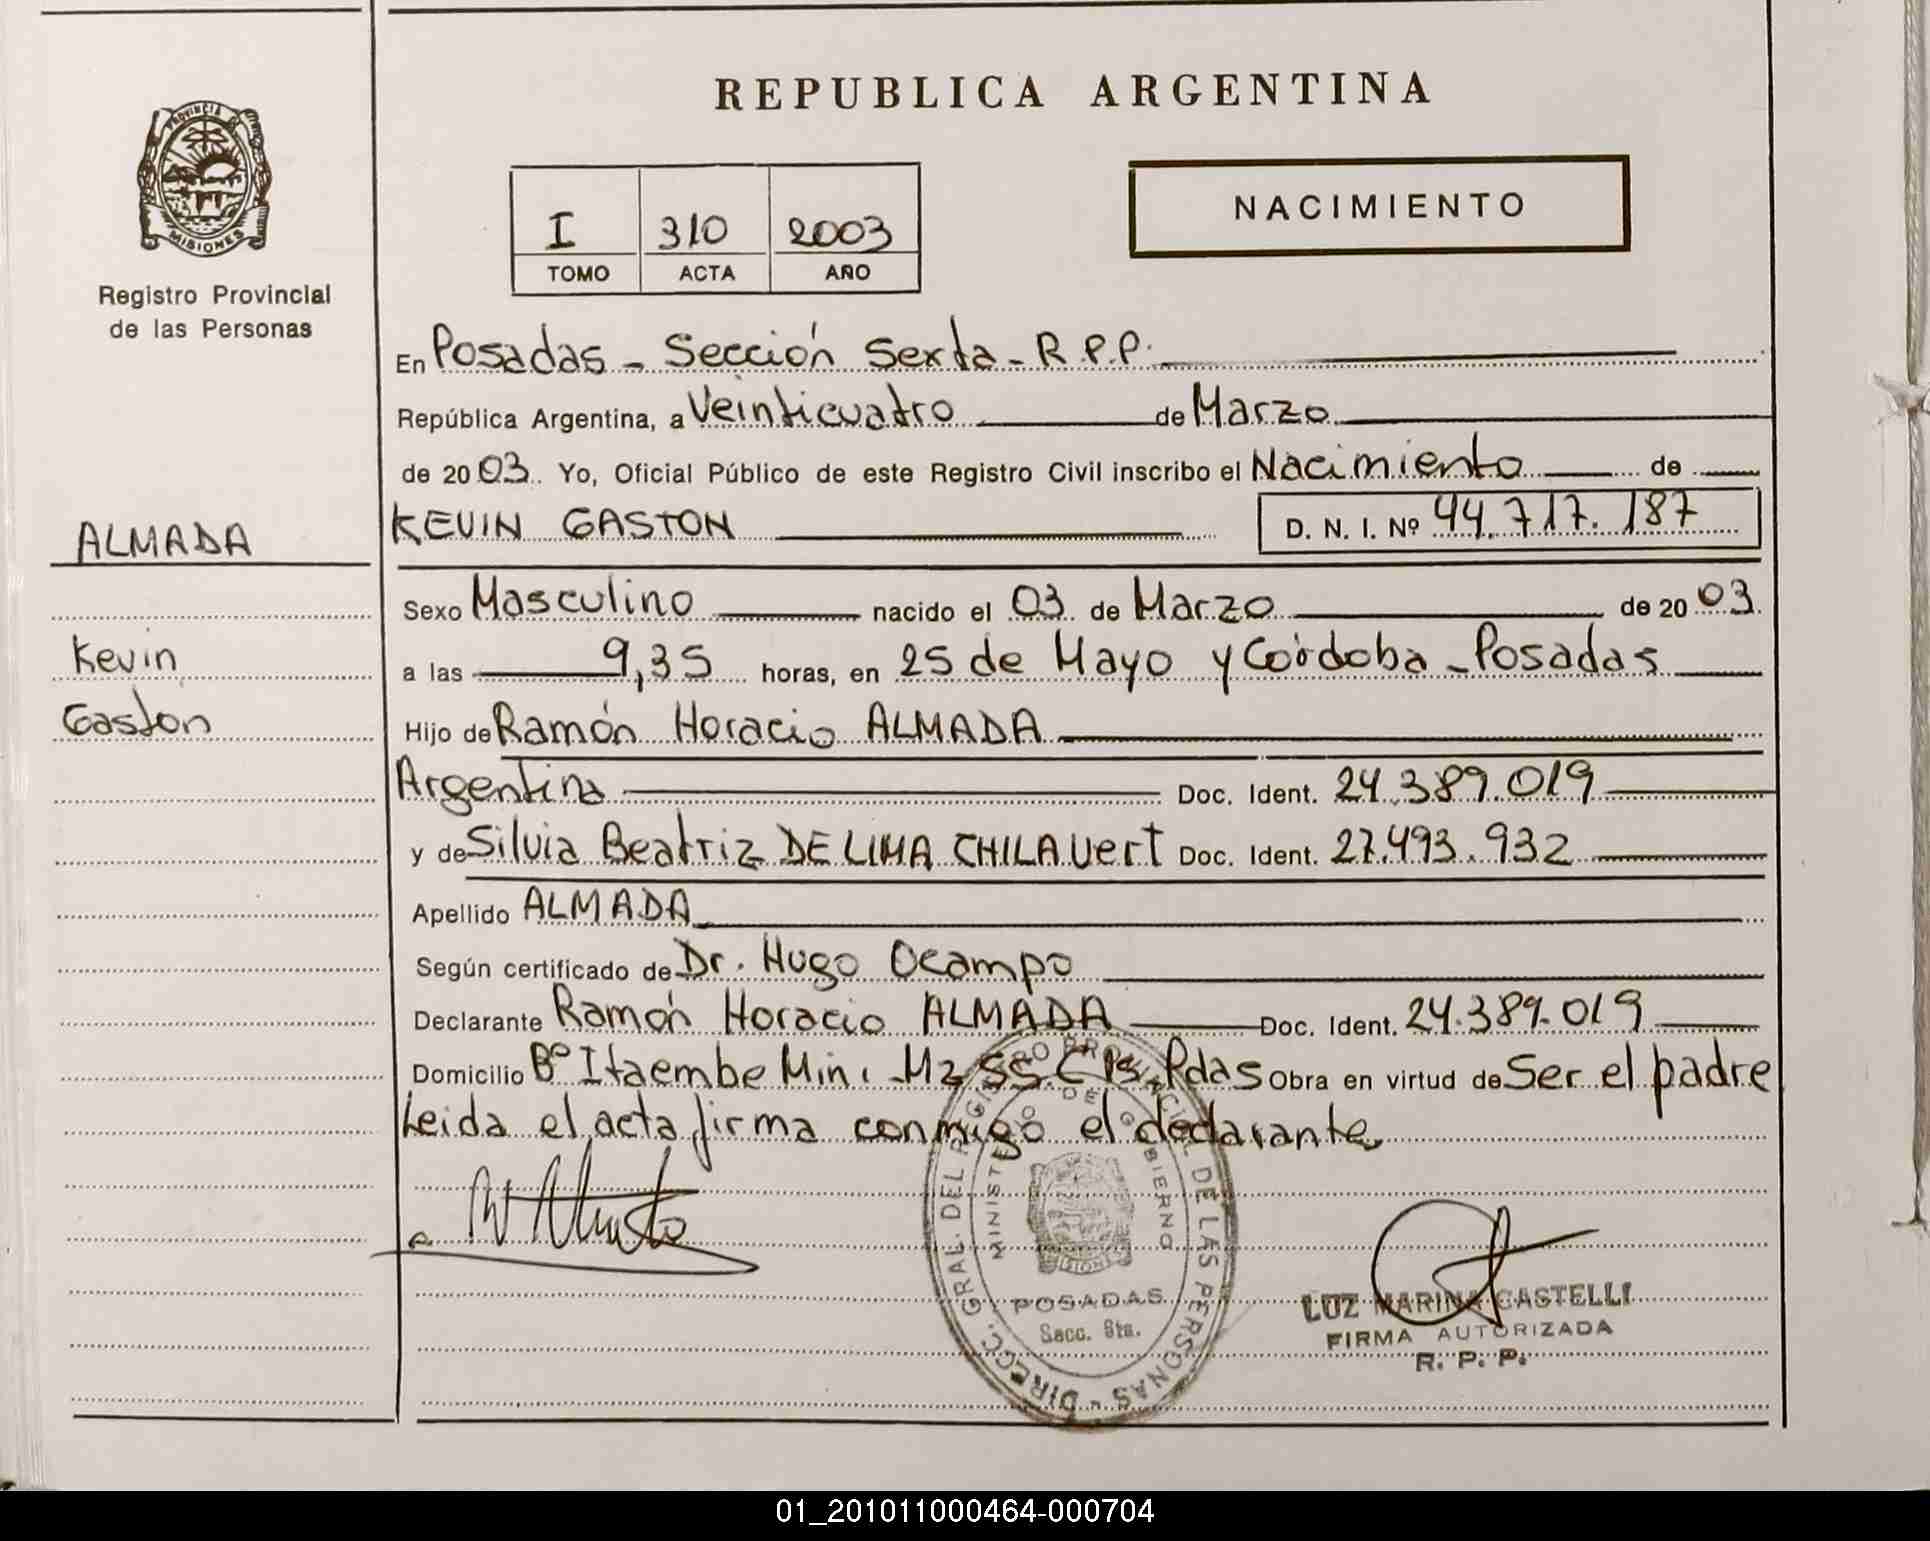 REPUBLICA ARGENTINA
PROVINCIA DE
MISIONES
Registro Provincial
de las Personas
I 310 2003
TOMO ACTA AÑO
NACIMIENTO
En Posadas - Sección Sexta - R.P.P.
República Argentina, a Veinticuatro de Marzo
de 2003. Yo, Oficial Público de este Registro Civil inscribo el Nacimiento de
ALMADA
KEVIN GASTON D. N. I. Nº 44.717.187
Sexo Masculino nacido el 03 de Marzo de 2003.
Kevin
a las 9,35 horas, en 25 de Mayo y Córdoba - Posadas
Gastón
Hijo de Ramón Horacio ALMADA
Argentina Doc. Ident. 24.389.019
y de Silvia Beatriz DE LIMA CHILAVert Doc. Ident. 27.493.932
Apellido ALMADA
Según certificado de Dr. Hugo Ocampo
Declarante Ramón Horacio ALMADA Doc. Ident. 24.389.019
Domicilio Bº Itaembe Mini Mz Pdas Obra en virtud de Ser el padre
Leida el acta firma conmigo el declarante
DIRECC. GRAL. DEL REGISTRO PROVINCIAL DE LAS PERSONAS -
MINISTERIO DE GOBIERNO
MISIONES
POSADAS
Secc. 6ta.
LUZ MARINA CASTELLI
FIRMA AUTORIZADA
R. P. P.
01_201011000464-000704